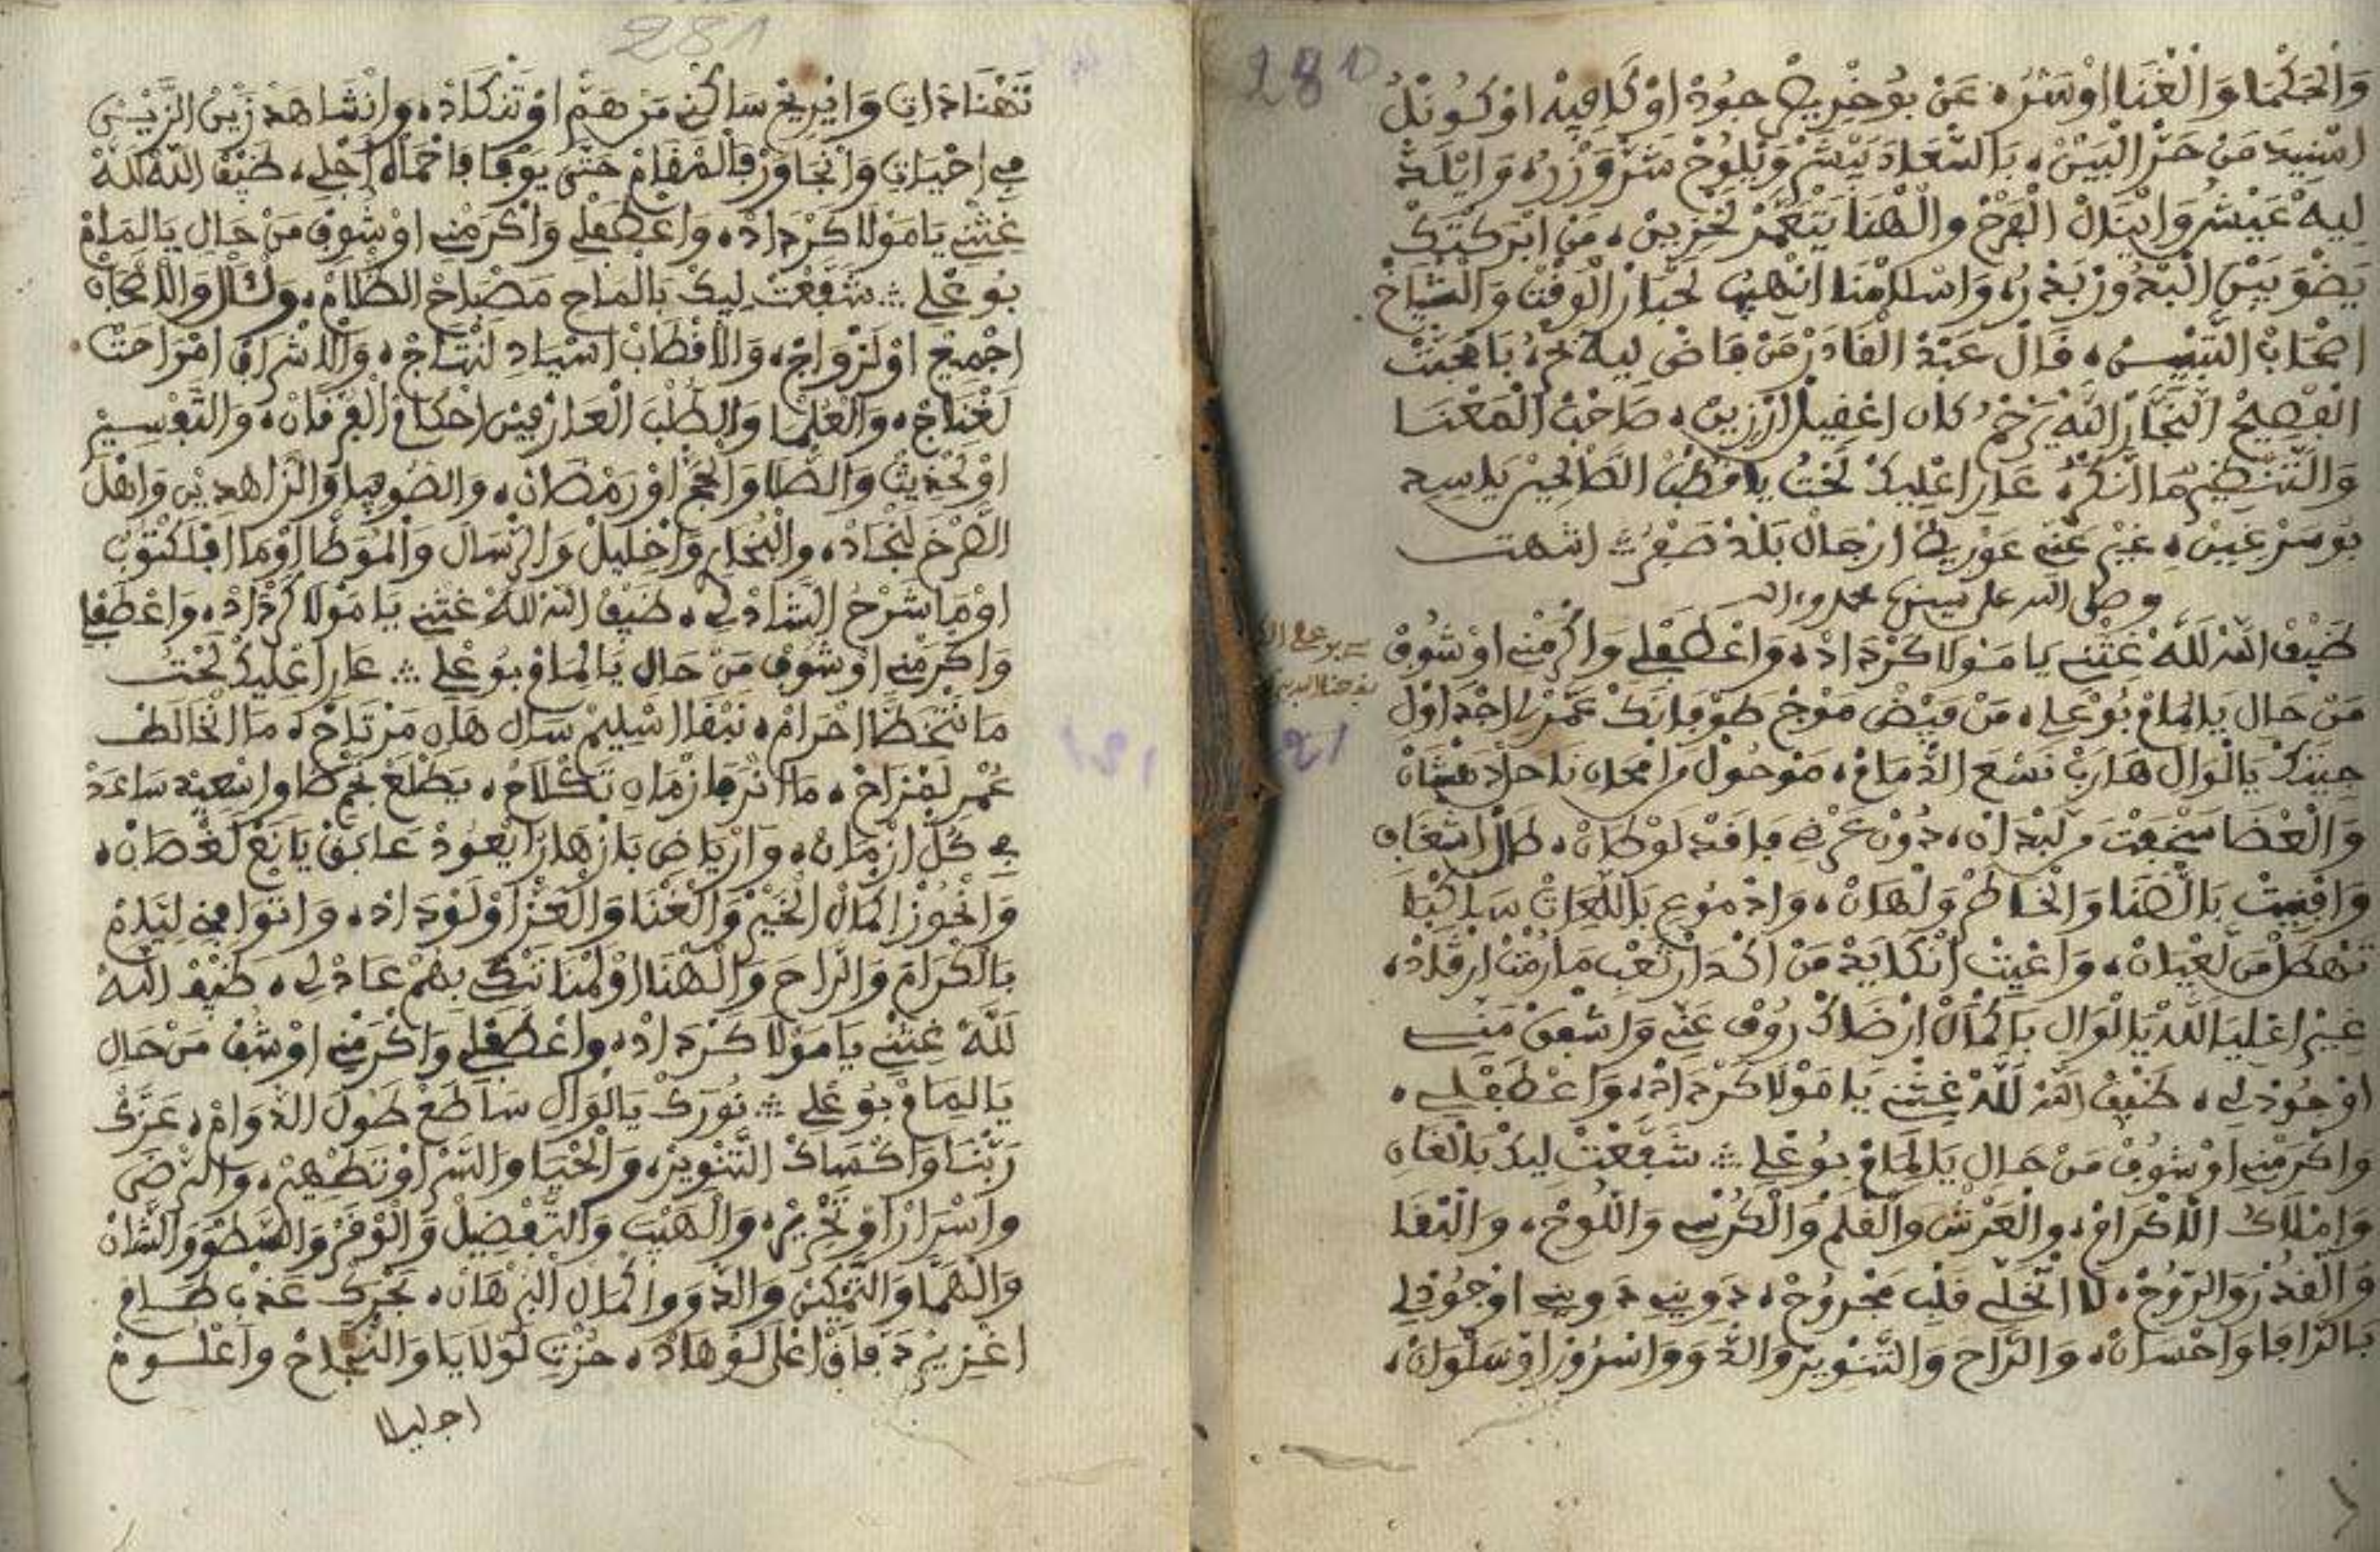 280
وَالْحَكْمَا وَالْغْنَا اوْسَرُّ، عَنْ بُوخْرِيصْ جُودْ اوْكَافِيهْ اوْكُونْلُ
اسْنِيدَ مَنْ حَرّْ الْبَيْنْ، بَالسّْعَادَ يَبْشَرْ وَيْلُوحْ شَرّْ وَزْرُ، وَايْلَدّْ
لِيهْ عَيْشُ وَايْنَالْ الْفَرْحْ وَالْهْنَا يَتْعَمَّرْ لَحْزِينْ، مَنْ ابَرَكْتَكْ
يَضْوَ بَيْنْ الْبْدُورْ بَدْرُ، وَاسْلَامْنَا انْهِيبْ لَحْبَارْ الْوَقْتْ وَالشْيَاخْ
اصْحَابْ التَّبْيِينْ، قَالْ عَبْدْ الْقَادَرْ مَنْ فَاضْ لِيهْ بَمْحَبَّتْ
الْفْصِيحْ النَّجَّارْ اللَّهْ يَرَحْمُ كَانْ اعْقِيلْ ارْزِينْ، صَاحَبْ الْمَعْنَا
وَالتَّنْظِيمْ مَا انْنَكْرُ، عَارَ اعْلِيكْ لَحْتُ يَا قُطْبْ الصَّالْحِينْ يَا سِيدِ
بُوسَرْغِينْ، غِيرْ عَنِّي عَوْرِيطْ ارْجَالْ بَلْدْ صَفْرُ ؞ انتهت
وصلى الله على سيدنا محمد وءاله
ضَيْفْ اللهْ لَلَّهْ غَتْنِي يَا مَوْلَا كَرْدَادْ، وَاعْطَفْلِي وَاكْرَمْنِي اوْشُوفْ
مَنْ حَالِ يَالِمَامْ بُوعْلِي، مَنْ فَيْضْ مَوْجْ طَوْفَانَكْ عَمَّرْ لِي اجْدَاوْلِ
جِيتَكْ يَالْوَالِ هَارَبْ نَسْعَ الذّْمَامْ، مَوْحُولْ فَامْحَانْ نَاحَلْ دَهْشَانْ
وَالْعْضَا سَخْفَتْ مَلَبْدَانْ، دُونْ عَرْضِ فَاقَدْ لَوْطَانْ، طَالْ اشْغَافِ
وَافْنِيتْ بَالضّْنَا وَالْخَاطَرْ وَلْهَانْ، وَادْمُوعِ بَاللّْعَاتْ سَاكْبَا
تَهْطَلْ مَنْ لَعْيَانْ، وَاعْيِيتْ انْكَابَدْ مَنْ اكْدَارْ تَعْبِ مَا رُمْتْ ارْقَادْ،
غِيرْ اعْلِيَا لَلَّهْ يَالْوَالِ بَاكْمَالْ ارْضَاكْ رُوفْ عَنِّي وَاشْفَقْ مَنِّي
اوْجُودْلِي، ضَيْفْ اللهْ لَلَّهْ غَتْنِي يَا مَوْلَا كَرْدَادْ، وَاعْطَفْلِي،
وَاكْرَمْنِي اوْشُوفْ مَنْ حَالِ يَالِمَامْ بُوعْلِي ؞ شَفَّعْتْ لِيكْ بَالْغَانِ
وَامْلَاكُ الْاكْرَامْ، وَالْعَرْشْ وَالْقْلَمْ وَالْكُرْسِي وَاللُّوحْ، وَالْبْقَا
وَالْقُدْرَ وَالرُّوحْ، لَا اتْخَلِّي قَلْبِ مَجْرُوحْ، دَوِينِي دَوِينِي اوْجُودْلِي
بَالرَّافَا وَاحْسَانْ، وَالرَّاحَ وَالتَّنْوِيرْ وَالدّْوَ وَاسْرُورْ اوْسَلْوَانْ،
281
نَتْهْنَا دَاتِ وَانْرِيحْ سَاكَنِّي مَنْ هَمّْ اوْتَنْكَادْ، وَانْشَاهَدْ زَيْنْ الزَّيْنْ
فِي احْيَاتِ وَانْجَاوَرْ فَالْمْقَامْ حَتَّى يَوْفَا فَاحْمَاهْ اجْلِي، ضَيْفْ اللهْ لَلَّهْ
غَتْنِي يَا مَوْلَا كَرْدَادْ، وَاعْطَفْلِي وَاكْرَمْنِي اوْشُوفْ مَنْ حَالِ يَالِمَامْ
بُوعْلِي ؞ شَفَّعْتْ لِيكْ بَالْمَاحِ مَصْبَاحْ الظّْلَامْ، وَلَالْ وَالْاصْحَابْ
اجْمِيعْ اوْلَزْوَاجْ، وَالْاقْطَابْ اسْيَادِ لَنْتَاجْ، وَالْاشْرَافْ امْرَاحَتْ
لَغْنَاجْ، وَالْعُلْمَا وَالطُّلْبَ الْعَارْفِينْ احْكَامْ الْفُرْقَانْ، وَالتَّفْسِيرْ
اوْلَحْدِيثْ وَالصّْلَا وَالْحَجّْ اوْرَمْضَانْ، وَالصُّوفِيَا وَالزَّاهْدِينْ وَاهْلْ
الصَّرْخَ لَنْجَادْ، وَالْبُخَارِ وَاخْلِيلْ وَالرّْسَالَ وَالْمُوَطَّا اوْمَا افْلَكْتُوبْ
اوْمَا شَرْحْ الشَّادْلِي، ضَيْفْ اللهْ لَلَّهْ غَتْنِي يَا مَوْلَا كَرْدَادْ، وَاعْطَفْلِي
وَاكْرَمْنِي اوْشُوفْ مَنْ حَالِ يَالِمَامْ بُوعْلِي ؞ عَارَ اعْلِيكْ لَحْتُ
مَا نَتْخَطَّا احْرَامْ، نَبْقَا اسْلِيمْ سَالِ هَانِ مَرْتَاحْ، مَا انْخَالَطْ
عُمْرِ لَقْزَاحْ، مَا انْرَى فَازْمَانِ تَكْلَاحْ، يَطْلَعْ نَجْمْ وَاسْعِيدِ سَاعَدْ
فِي كُلّْ ازْمَانْ، وَارْيَاضِ بَازْهَارُ ايْعُودْ عَابَقْ يَانَعْ لَغْصَانْ،
وَانْحُوزْ اكْمَالْ الْخَيْرْ وَالْغْنَا وَالْعَزّْ اوْلَوْدَادْ، وَاتْوَافِينِي لَيَّامْ
بَالْكْرَامَ وَالرَّاحَ وَالْهْنَا اوْلَمْنَا نَبْكِي بَهْمْ عَادْلِي، ضَيْفْ اللهْ
لَلَّهْ غَتْنِي يَا مَوْلَا كَرْدَادْ، وَاعْطَفْلِي وَاكْرَمْنِي اوْشُفْ مَنْ حَالِ
يَالِمَامْ بُوعْلِي ؞ نُورَكْ يَالْوَالِ سَاطَعْ طُولَ الدّْوَامْ، عَزَّكْ
رَبّْنَا وَاكْسَاكْ التَّنْوِيرْ، وَالْحْيَا وَالسَّرّْ اوْتَطْهِيرْ، وَالرّْضَى
وَاسْرَارْ اوْتَحْرِيرْ، وَالْهَيْبَ وَالتَّفْضِيلْ وَالْوْقَرْ وَالسَّطْوَ وَالشَّانْ
وَالْهَمَّا وَالتَّمْكِينْ وَالدّْوَ وَاكْمَالْ الْبَرْهَانْ، بَحْرَكْ عَذْبْ طَامِ
اغْزِيرْ فَاقْ اعْلَى لَوْهَادْ، حُزْتِ لَوْلَايَا وَالنّْجَاحْ وَاعْلُومْ
اجليلا